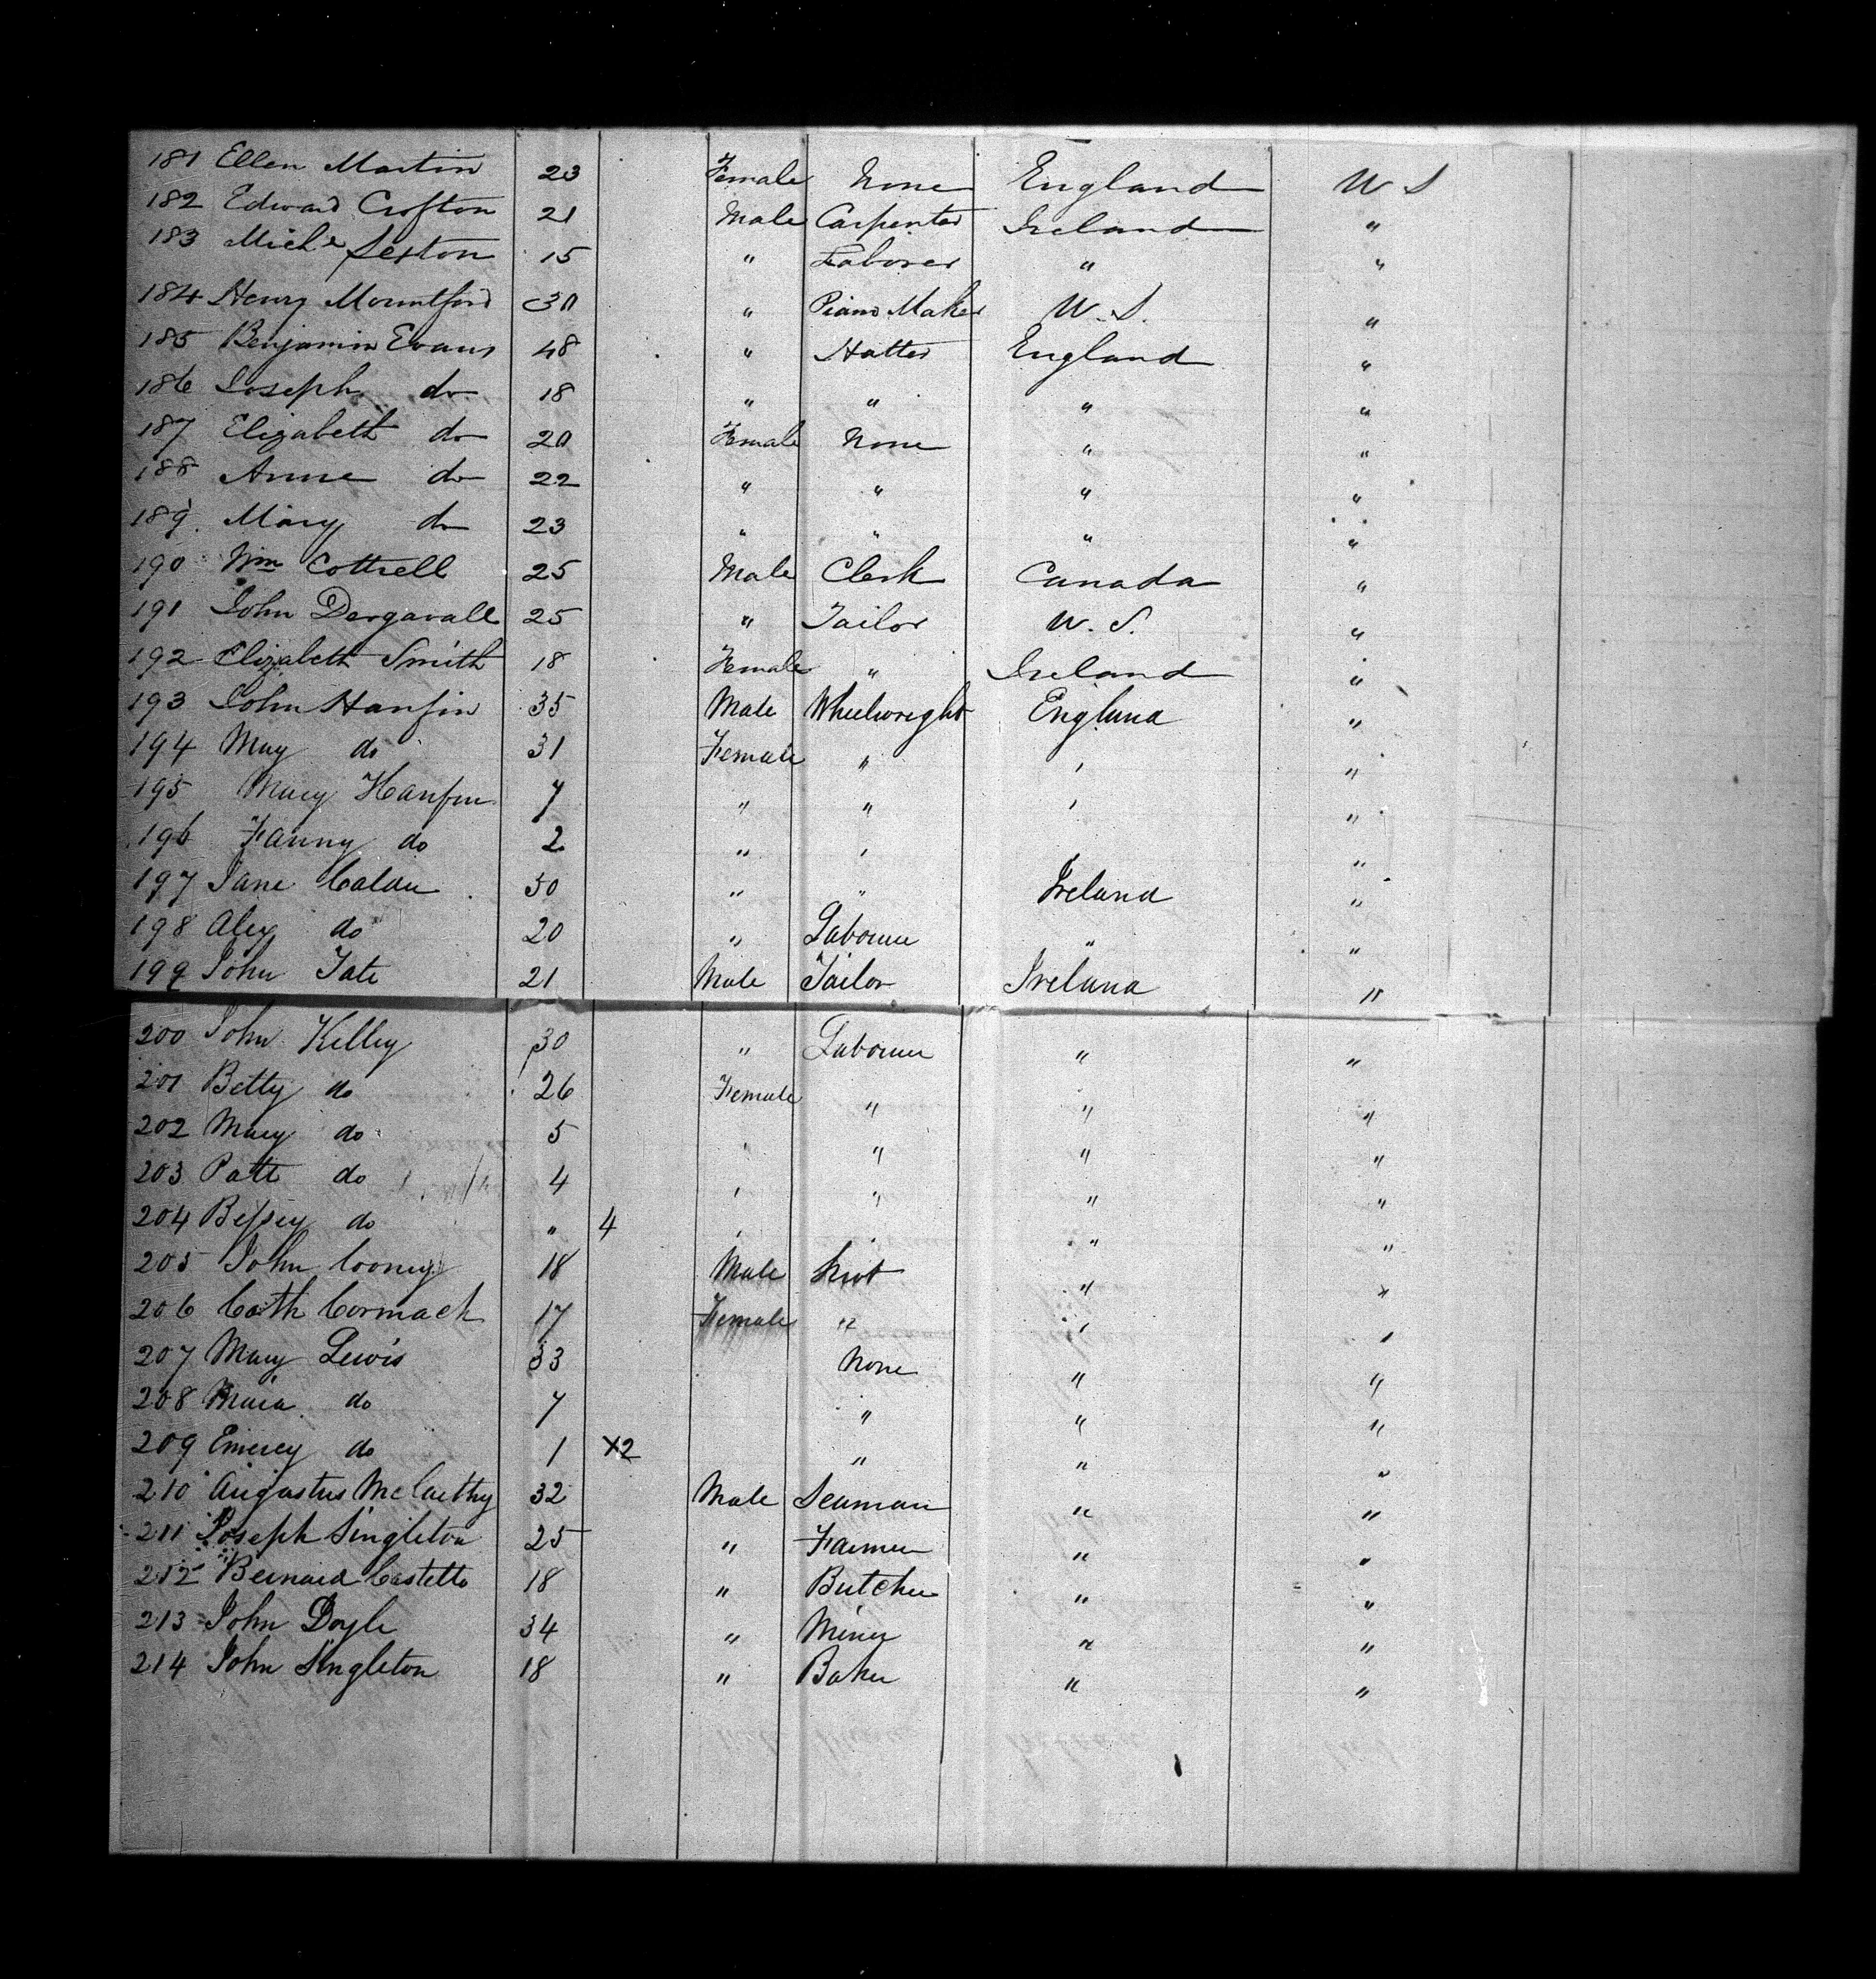 181 Ellen Martin 23 Female None England U S
182 Edward Crofton 21 Male Carpenter Ireland "
183 Michl Sexton 15 " Laborer " "
184 Henry Mountford 30 " Piano Maker U.S. "
185 Benjamin Evans 48 " Hatter England "
186 Joseph do 18 " " " "
187 Elizabeth do 20 Female None " "
188 Anne do 22 " " " "
189 Mary do 23 " " " "
190 Wm Cottrell 25 Male Clerk Canada "
191 John Dergavall 25 " Tailor U.S. "
192 Elizabeth Smith 18 Female " Ireland "
193 John Hanfin 35 Male Wheelwright England "
194 Mary do 31 Female " " "
195 Mary Hanfin 7 " " " "
196 Fanny do 2 " " "
197 Jane 50 " " Ireland "
198 Alex do 20 " Labourer " "
199 John Tate 21 Male Tailor Ireland "
200 John Kelley 30 " Labourer " "
201 Betty do 26 Female " " "
202 Mary do 5 " " " "
203 Patt do 4 " " " "
204 Bessey do " 4 " " " "
205 John Cooney 18 Male " "
206 Cath Cormack 17 Female " " "
207 Mary Lewis 33 None " "
208 Maria do 7 " " "
209 do 1 X2 " " "
210 Augustus McCarthy 32 Male Seaman " "
211 Joseph Singleton 25 " Farmer " "
212 Bernard Costello 18 " Butcher " "
213 John Doyle 34 " Miner " "
214 John Singleton 18 " Baker " "